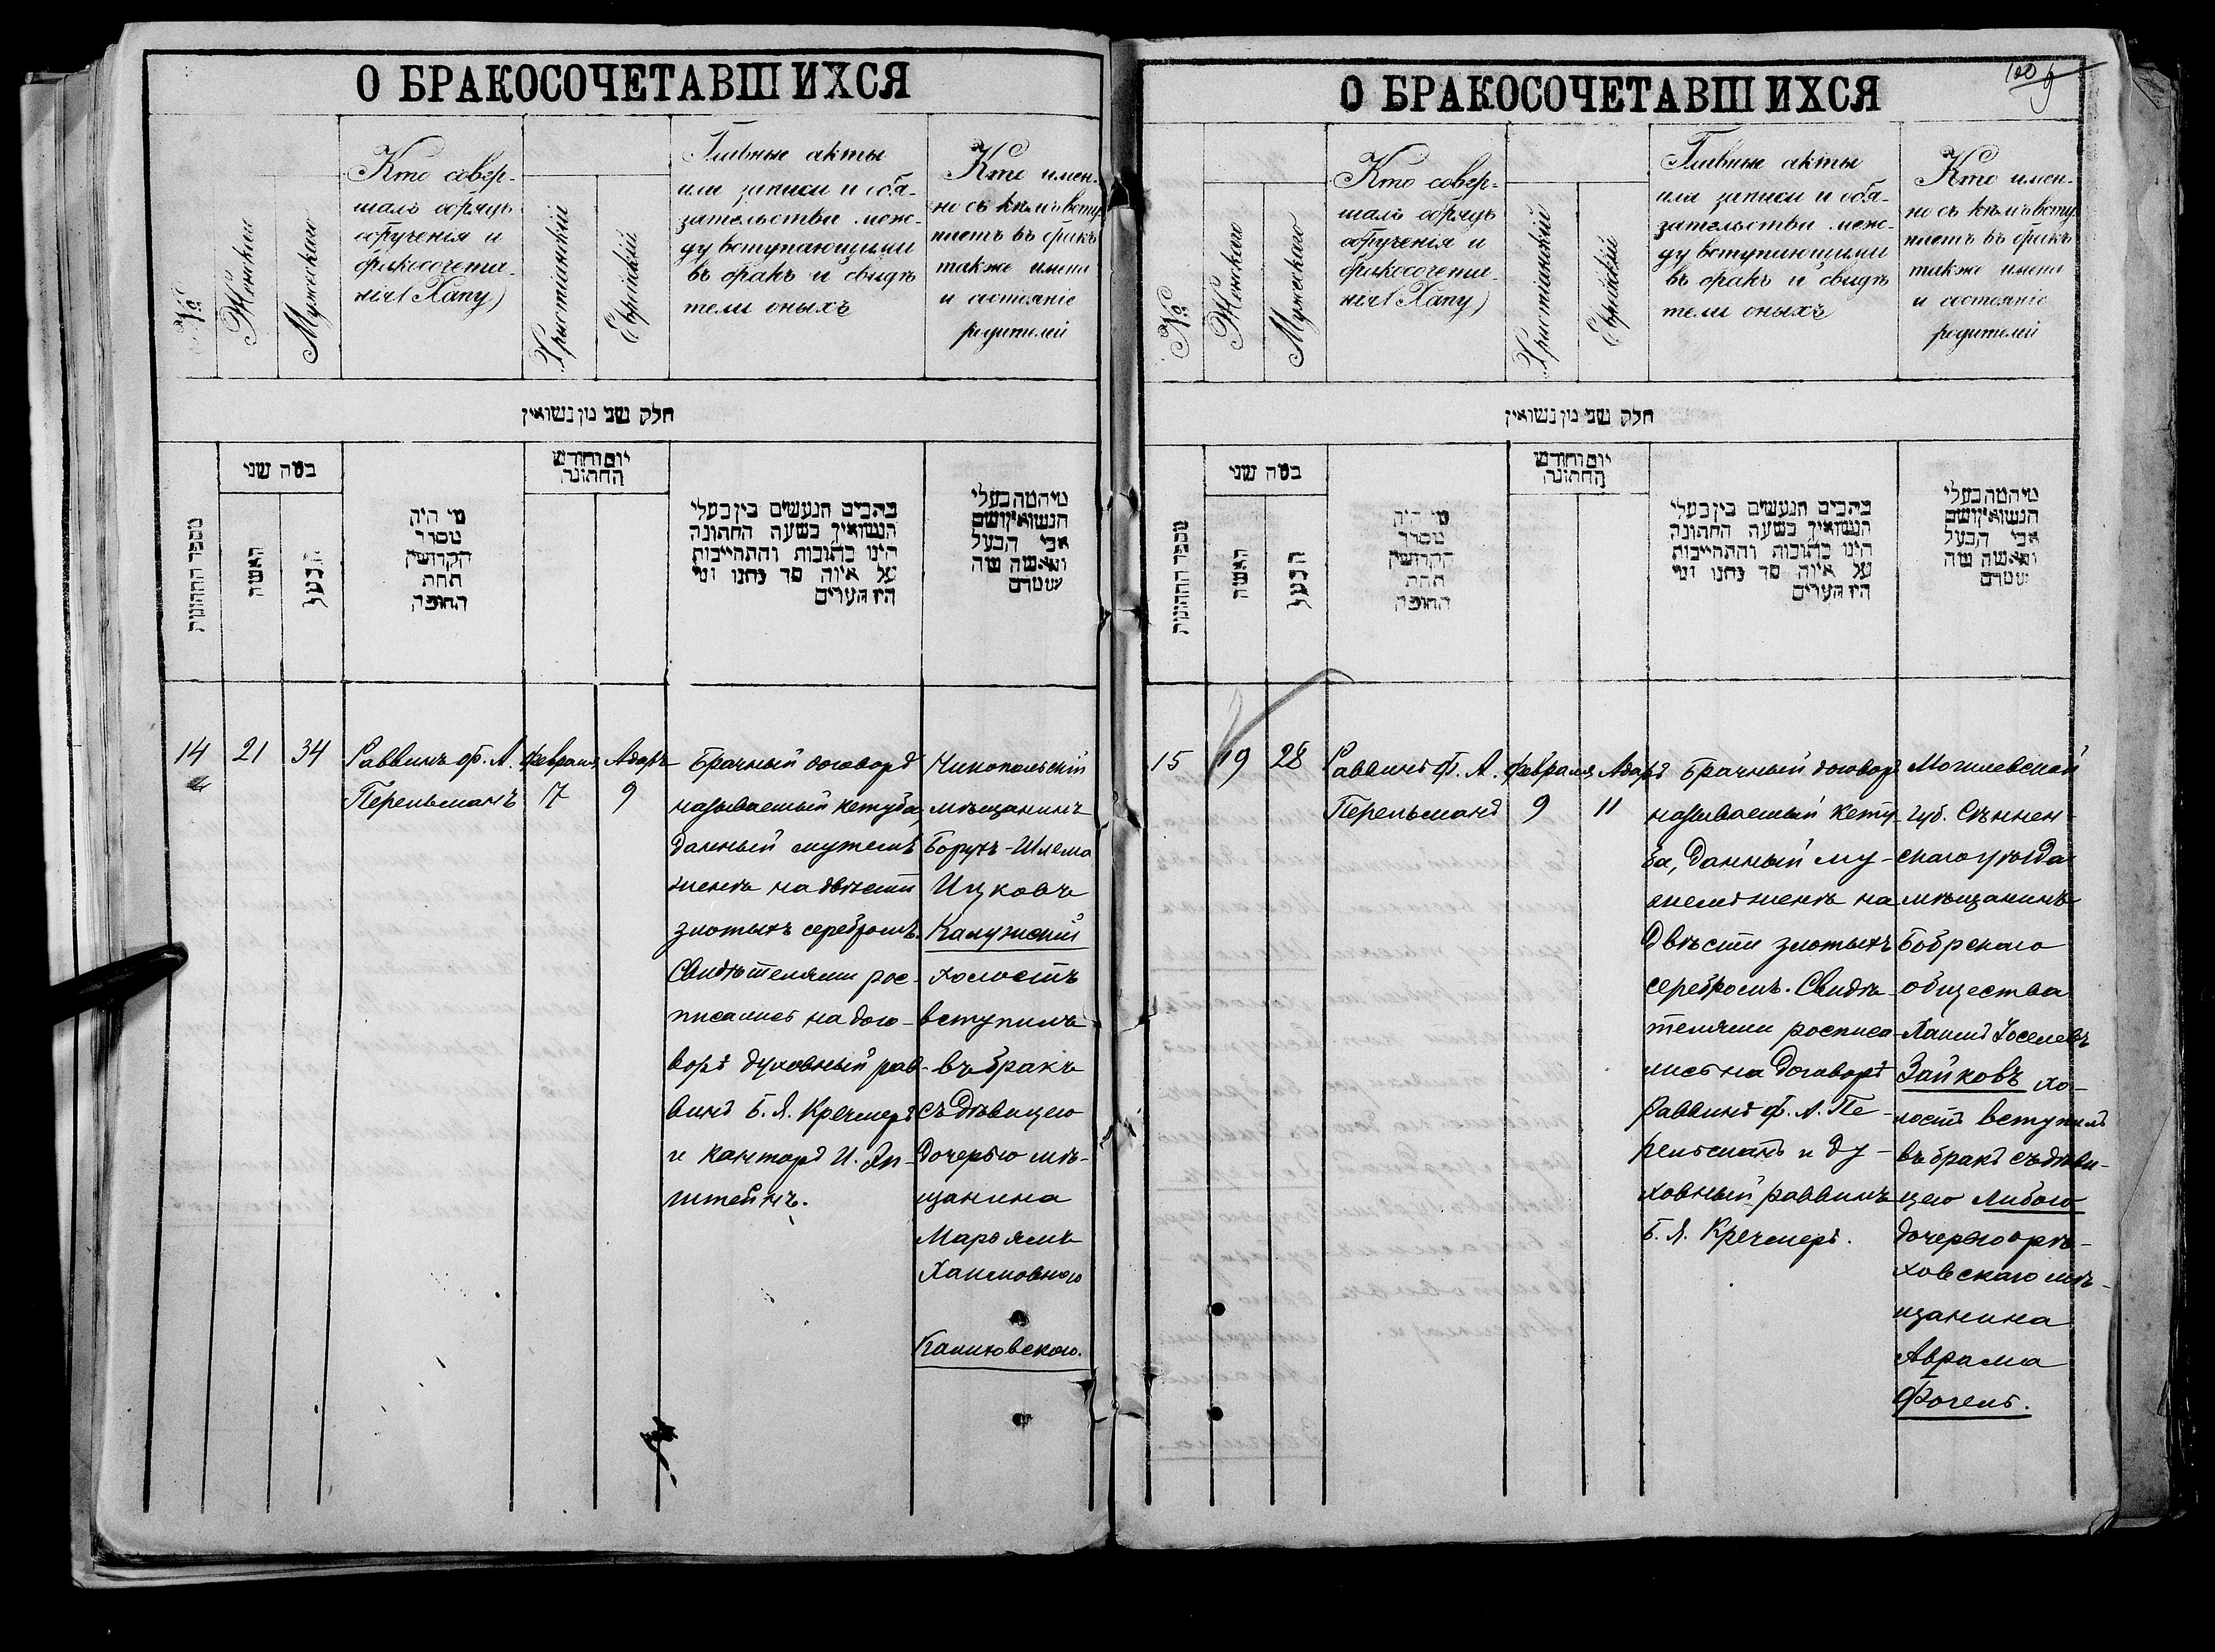 О БРАКОСОЧЕТАВШИХСЯ
№
Женскаго
Мужескаго
Кто совер-
шалъ обрядъ
обрученія и
бракосочета-
нія (Хапу)
Христіанскій
Еврейскій
Главные акты
или записи и обя-
зательства меж-
ду вступающими
въ бракъ и свидѣ
тели оныхъ
Кто имен-
но съ кѣмъ всту
паетъ въ бракъ
также имена
и состояніе
родителей
חלק שני מן נשואין
מספר החתונות
במה שני
האשה
הבעל
מי היה
מסדר
הקדושין
תחת
החופה
יום וחודש
החתונה
בהבים הנעשים בין בעלי
הנשואין בשעה החתונה
הינו כתובות והתחייבות
על איזה סך נתנו ומי
היו העדים
מיהמה בעלי
הנשואין ושם
אבי הבעל
והאשה מה
שמדם
14
21
34
Раввинъ Ф. А.
Перельманъ
Февраля
7
Адаръ
9
Брачный договоръ
называемый кетуба
данный мужемъ
женѣ на двѣсти
злотыхъ серебромъ.
Свидѣтелями рос-
писались на дого-
ворѣ духовный рав-
винъ Б. Я. Кречмеръ
и канторъ И. Эп-
штейнъ.
Никопольскій
мѣщанинъ
Борухъ-Шлема
Ицковъ
Калужскій
холостъ
вступилъ
въ бракъ
съ дѣвицею
дочерью мѣ-
щанина
Марьямъ
Хаимовною
Каплювскаго.
О БРАКОСОЧЕТАВШИХСЯ
100
№
Женскаго
Мужескаго
Кто совер-
шалъ обрядъ
обрученія и
бракосочета-
нія (Хапу)
Христіанскій
Еврейскій
Главные акты
или записи и обя-
зательства меж-
ду вступающими
въ бракъ и свидѣ
тели оныхъ
Кто имен-
но съ кѣмъ всту
паетъ въ бракъ
также имена
и состояніе
родителей
חלק שני מן נשואין
מספר החתונות
במה שני
האשה
הבעל
מי היה
מסדר
הקדושין
תחת
החופה
יום וחודש
החתונה
בהבים הנעשים בין בעלי
הנשואין בשעה החתונה
הינו כתובות והתחייבות
על איזה סך נתנו ומי
היו העדים
מיהמה בעלי
הנשואין ושם
אבי הבעל
והאשה מה
שמדם
15
19
28
Раввинъ Ф. А.
Перельманъ
Февраля
9
Адаръ
11
Брачный договоръ
называемый кету-
ба, данный му-
жемъ женѣ на
двѣсти злотыхъ
серебромъ. Свидѣ-
телями росписа-
лись на договорѣ
Раввинъ Ф. А. Пе-
рельманъ и ду-
ховный раввинъ
Б. Я. Кречмеръ.
Могилевской
губ. Сѣннен-
скаго уѣзда
мѣщанинъ
Бобрскаго
общества
Хаимъ Іоселевъ
Зайковъ хо-
лостъ вступилъ
въ бракъ съ дѣви-
цею Либою
дочерью орѣ-
ховскаго мѣ-
щанина
Аврама
Фогель.